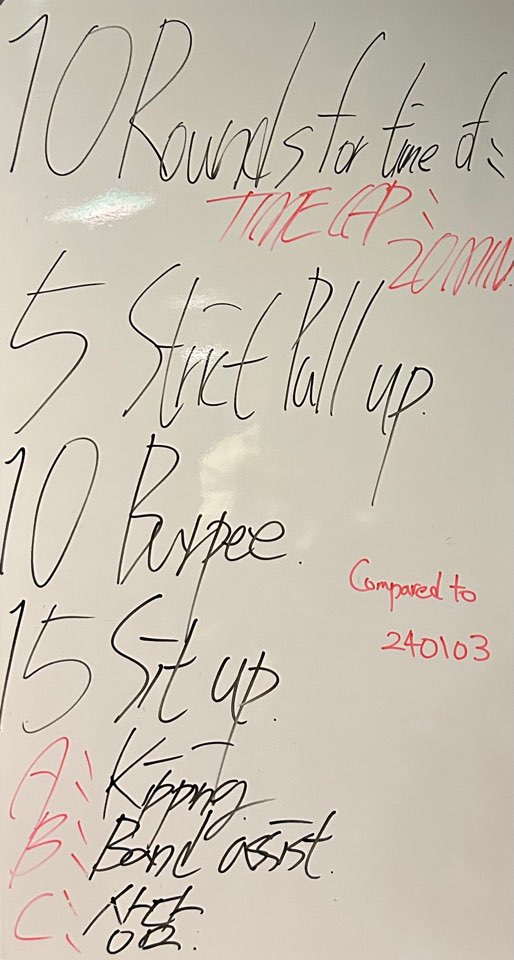 10 Rounds for time of:
TIME CAP:
20MIN.
5 Strict Pull up.
10 Burpee.
Compared to
240103
15 Sit up.
A: Kipping.
B: Band assist.
C: 상담.